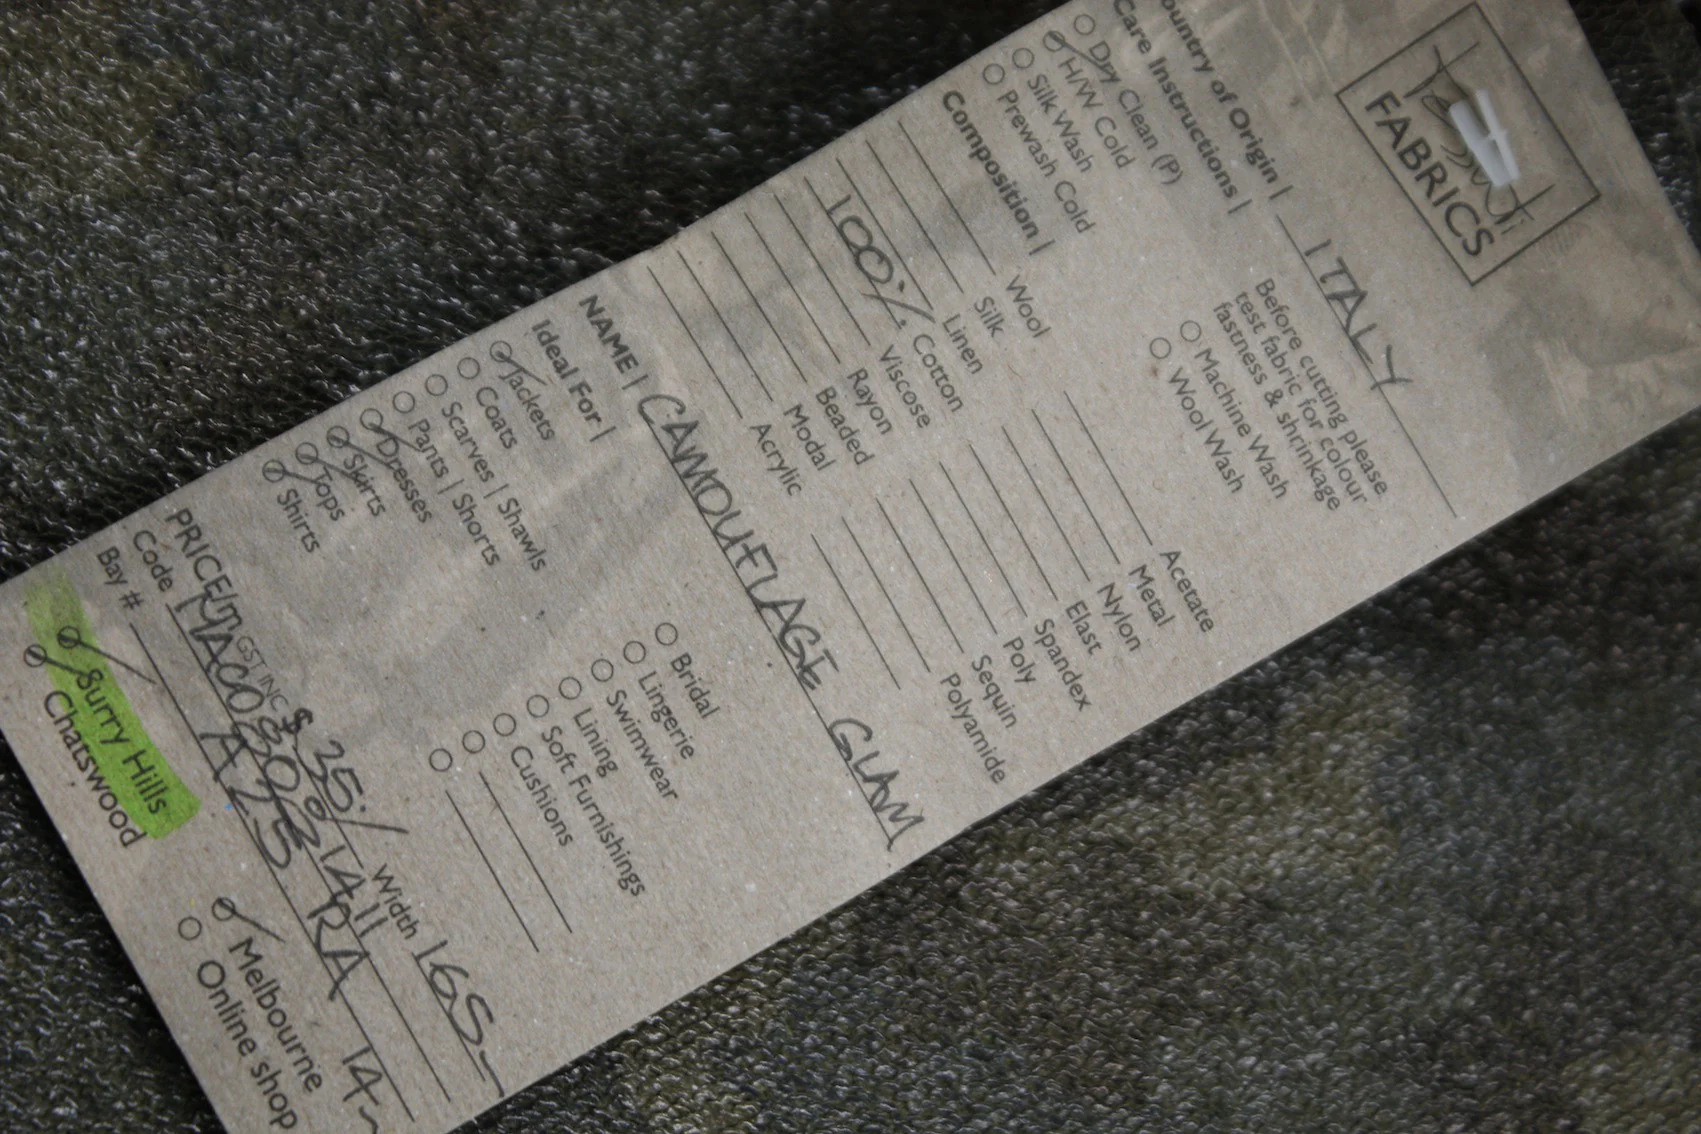 FABRICS
ountry of Origin | ITALY
Care Instructions |
Dry Clean (P)
H/W Cold
Silk Wash
Prewash Cold
Before cutting please
test fabric for colour
fastness & shrinkage
Machine Wash
Wool Wash
Composition |
Wool
Silk
Linen
100% Cotton
Viscose
Rayon
Beaded
Modal
Acrylic
Acetate
Metal
Nylon
Elast
Spandex
Poly
Sequin
Polyamide
NAME | CAMOUFLAGE GLAM
Ideal For |
Jackets
Coats
Scarves | Shawls
Pants | Shorts
Dresses
Skirts
Tops
Shirts
Bridal
Lingerie
Swimwear
Lining
Soft Furnishings
Cushions
PRICE/m GST INC $ 35 Width 165
Code
Bay # A25 RA 14
Surry Hills
Chatswood
Melbourne
Online shop